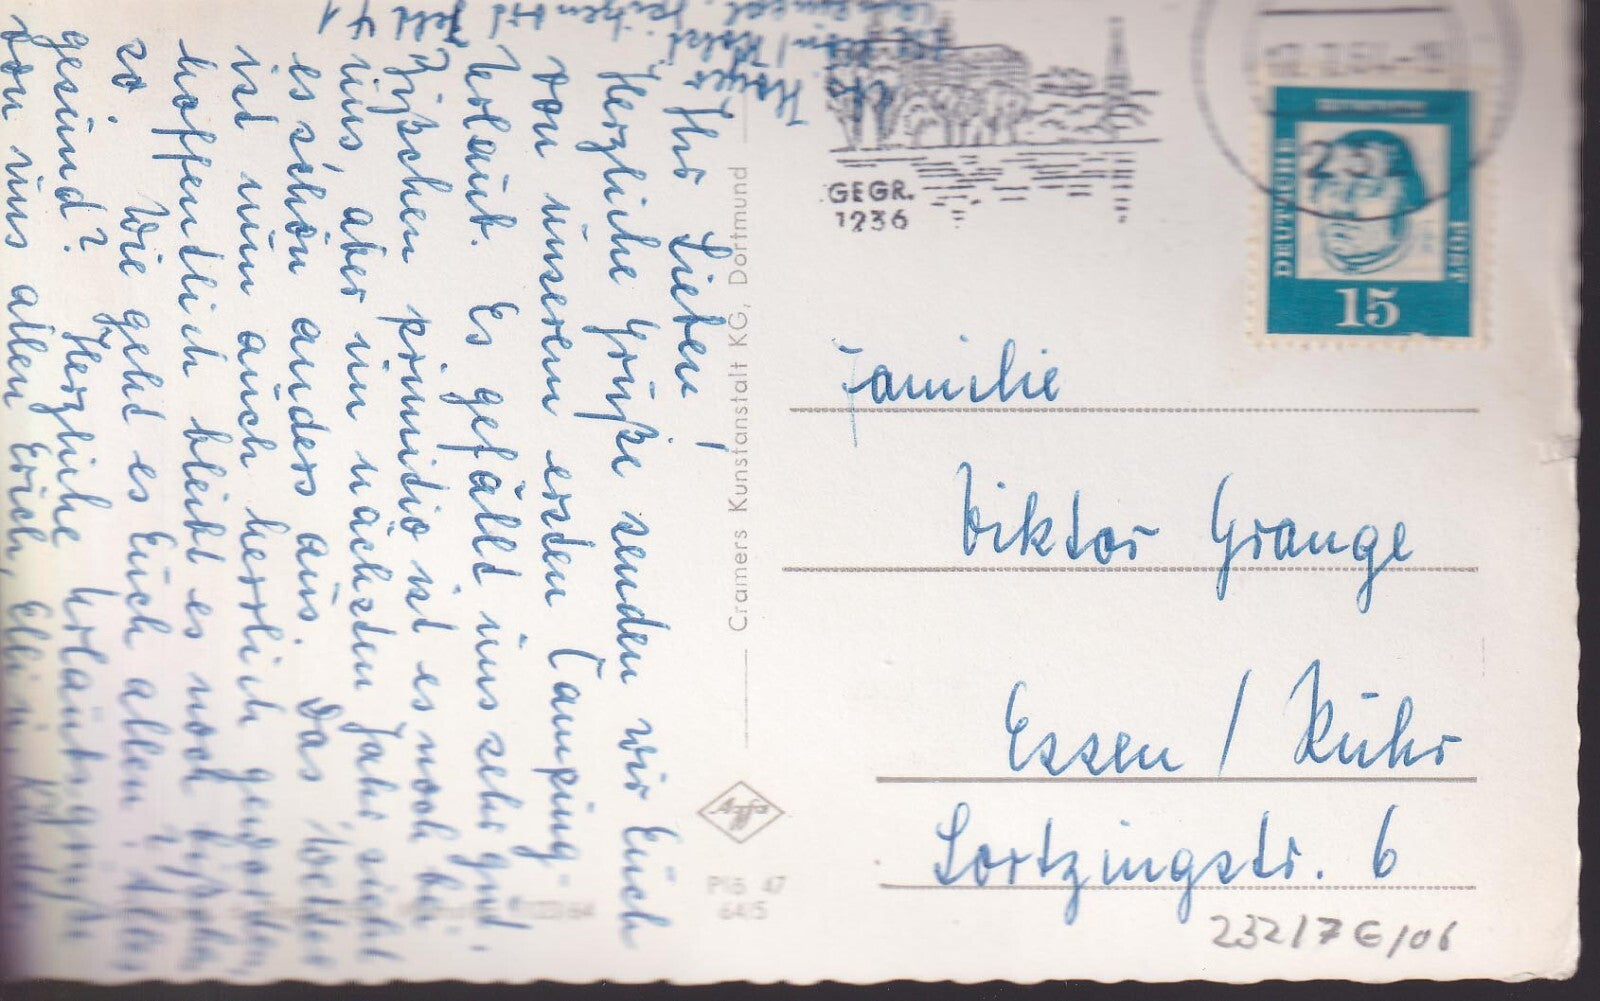 Ihr Lieben!
Herzliche Grüße senden wir Euch
von unserem ersten Camping-
Urlaub. Es gefällt uns sehr gut.
Bißchen primitiv ist es noch bei
uns, aber im nächsten Jahr sieht
es schon anders aus. Das Wetter
ist nun auch herrlich geworden,
hoffentlich bleibt es noch bißchen
so. Wie geht es Euch allen? Alles
gesund? Herzliche Urlaubsgrüße
von uns allen Erich, Elli u. Kinder
Feld 41
GEGR.
1236
232
DEUTSCHE
POST
15
Familie
Viktor Grange
Essen / Ruhr
Lortzingstr. 6
Cramers Kunstanstalt KG, Dortmund
Agfa
Plö 47
64/5
232/7 E/06